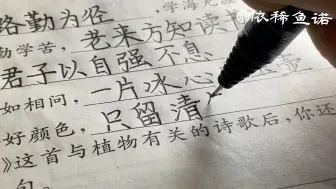 @依稀鱼诺
路勤为径 学海无
勤学苦， 老来方知读
君子以自强不息
如相问， 一片冰心 壶
好颜色， 只留清
》这首与植物有关的诗歌后，你还
句。